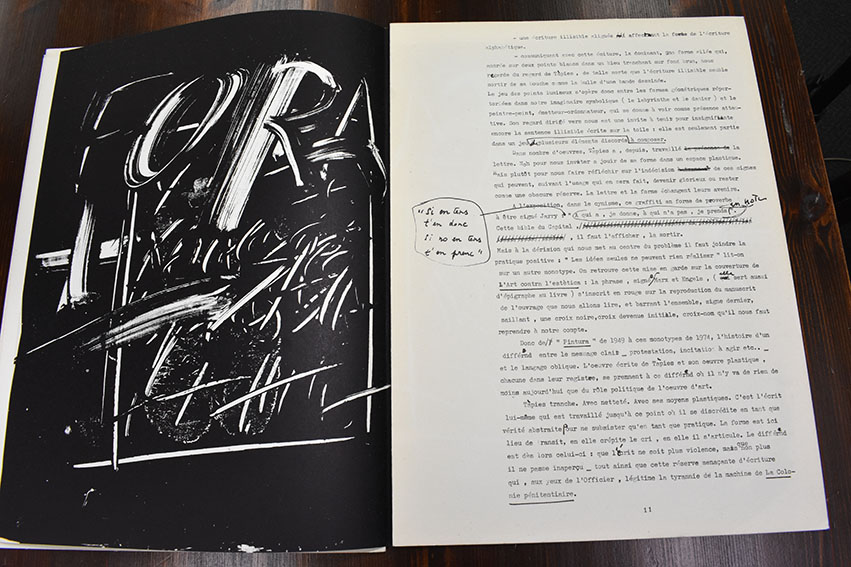 FORA
- une écriture illisible alignée affectant la forme de l'écriture
alphabétique.
- communiquant avec cette écriture, la dominant, une forme
encrée sur deux points blancs dans un bleu tranchant sur fond brun, nous
regarde du regard de Tàpies, de telle sorte que l'écriture illisible semble
sortir de sa bouche comme la bulle d'une bande dessinée.
Le jeu des points lumineux s'opère donc entre les formes géométriques réper-
toriées dans notre imaginaire symbolique ( le labyrinthe et le damier ) et le
peintre-point, émetteur-ordonnateur, qui se donne à voir comme présence atten-
tive. Son regard dirigé vers nous est une invite à tenir pour insignifiante
encore la sentence illisible écrite sur la toile : elle est seulement partie
dans un jeu plusieurs éléments discords à composer.
Dans nombre d'oeuvres, Tàpies a , depuis, travaillé la
lettre. Non pour nous inviter à jouir de sa forme dans un espace plastique.
Mais plutôt pour nous faire réfléchir sur l'indécision de ces signes
qui peuvent, suivant l'usage qui en sera fait, devenir glorieux ou rester
comme une obscure réserve. La lettre et la forme échangent leurs avenirs.
A l'exposition, dans le cynisme, ce graffiti en forme de proverbe
en note
à être signé Jarry : " A qui a , je donne, à qui n'a pas , je prends".
"Si en tens
t'en donc
Si no en tens
t'en prenc"
Cette bible du Capital ,
, il faut l'afficher, la sortir.
Mais à la dérision qui nous met au centre du problème il faut joindre la
pratique positive : " Les idées seules ne peuvent rien réaliser " lit-on
sur un autre monotype. On retrouve cette mise en garde sur la couverture de
L'Art contra l'estètica : la phrase , signé Marx et Engels , ( elle sert aussi
d'épigraphe au livre ) s'inscrit en rouge sur la reproduction du manuscrit
de l'ouvrage que nous allons lire, et barrant l'ensemble, signe dernier,
saillant , une croix noire,croix devenue initiale, croix-nom qu'il nous faut
reprendre à notre compte.
Donc de " Pintura " de 1949 à ces monotypes de 1974, l'histoire d'un
différend entre le message clair _ protestation, incitation à agir etc.. _
et le langage oblique. L'oeuvre écrite de Tàpies et son oeuvre plastique ,
chacune dans leur registre, se prennent à ce différend où il n'y va de rien de
moins aujourd'hui que du rôle politique de l'oeuvre d'art.
Tàpies tranche. Avec netteté. Avec ses moyens plastiques. C'est l'écrit
lui-même qui est travaillé jusqu'à ce point où il se discrédite en tant que
vérité abstraite pour ne subsister qu'en tant que pratique. La forme est ici
lieu de transit, en elle crépite le cri , en elle il s'articule. Le différend
est dès lors celui-ci : que l'écrit ne soit plus violence, mais que non plus
il ne passe inaperçu _ tout ainsi que cette réserve menaçante d'écriture
qui , aux yeux de l'Officier , légitime la tyrannie de la machine de La Colo-
nie pénitentiaire.
11